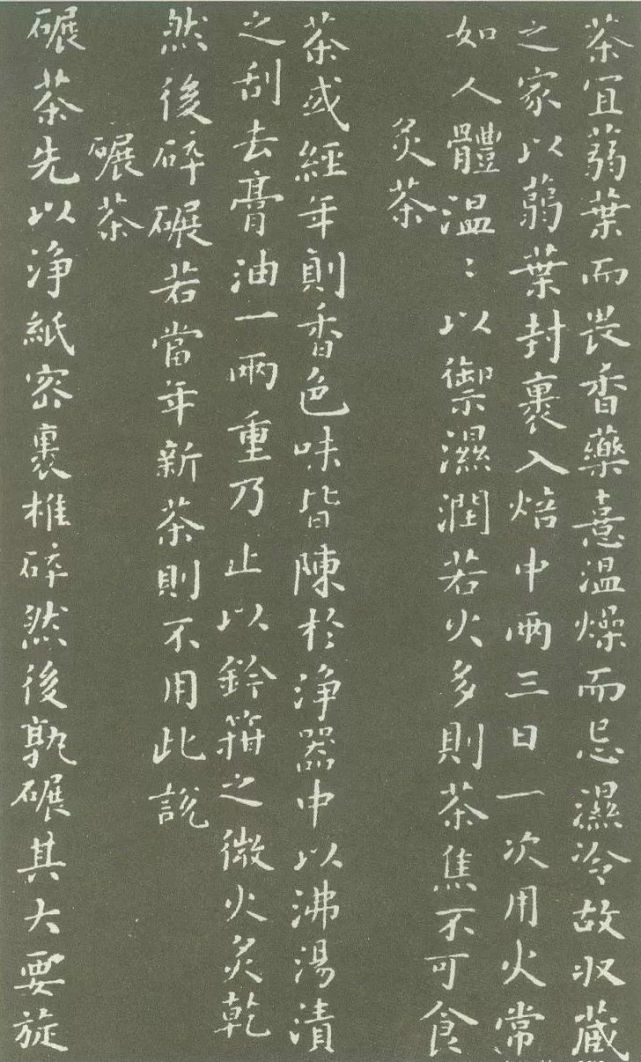 茶宜蒻葉而畏香藥憙溫燥而忌濕冷故收蔵
之家以蒻葉封裹入焙中兩三日一次用火常
如人體溫：以御濕潤若火多則茶焦不可食
炙茶
茶或經年則香色味皆陳於淨器中以沸湯漬
之刮去膏油一兩重乃止以鈐箝之微火炙乾
然後碎碾若當年新茶則不用此說
碾茶
碾茶先以淨紙密裹椎碎然後孰碾其大要旋